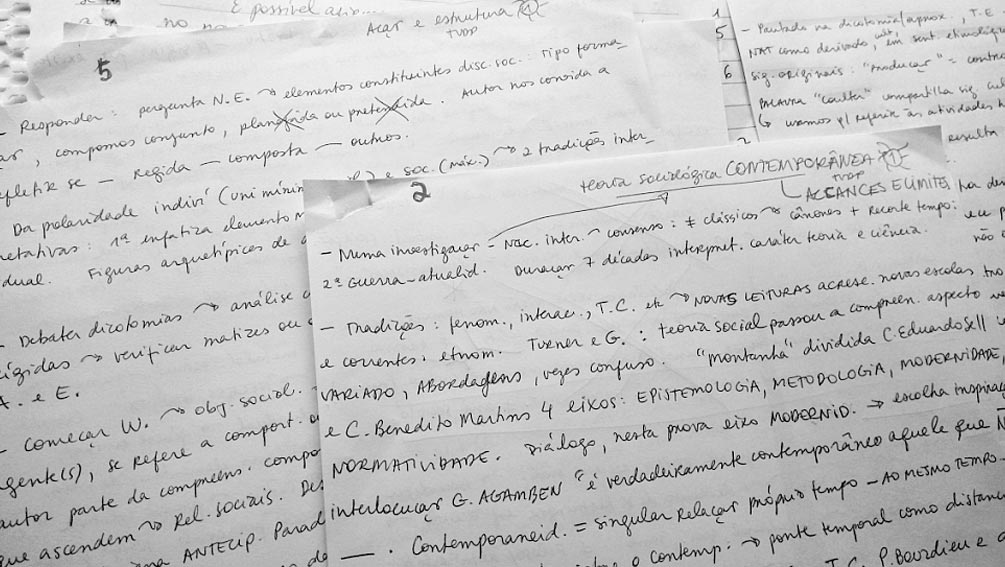 É possível
5
Ação e estrutura 1
TVDP
- Responder: pergunta N.E. ~> elementos constituintes disc. soc.: tipo forma
compomos conjunto, planejada ou pretendida. Autor nos convida a
refletir se – Regida – composta – outros.
Da polaridade indiví (uni mínim
e soc. (máx.) ~> 2 tradições inter
etativas: 1ª enfatiza elemento
dual. Figuras arquetípicas de
- Debater dicotomias ~> análise
rígidas ~> verificar matizes ou
A. e E.
- Começar W. ~> obj. social.
agente(s), se refere a comport.
autor parte da compreens. compo
que ascendem ~> Rel. sociais. Des
ANTECIP. Parad
5
- Pautado na dicotomia (aprox., T.E
NAT como derivado, em sent. etimológi
6
sig. originais: "produção" =
PALAVRA "coulter" compartilha sig. cul
↳ usamos p/ referir às atividades
resulta
2
teoria sociológica CONTEMPORÂNEA 1
TVDP
↳ ALCANCES E LIMITES
- Numa investigação – Nac. inter. ~ consenso: ≠ clássicos ~> cânones + Recorte tempo:
2ª Guerra – atualid. Duração 7 décadas interpret. caráter teoria e ciência.
- Tradições: fenom., interac., T.C. etc ~> NOVAS LEITURAS ACRESC. novas escolas
e correntes. etnom. Turner e G.: teoria social passou a compreen. aspecto
VARIADO, ABORDAGENS, vezes confuso. "montanha" dividida C. Eduardo Sell
e C. Benedito Martins 4 eixos: EPISTEMOLOGIA, METODOLOGIA, MODERNIDADE,
NORMATIVIDADE. Diálogo, nesta prova eixo MODERNID. → escolha inspiraç
interlocução G. AGAMBEN "é verdadeiramente contemporâneo aquele que N
. Contemporaneid. = singular Relação próprio tempo – AO MESMO TEMPO -
o contemp: → ponte temporal como distanc
T.C. P. Bourdieu e